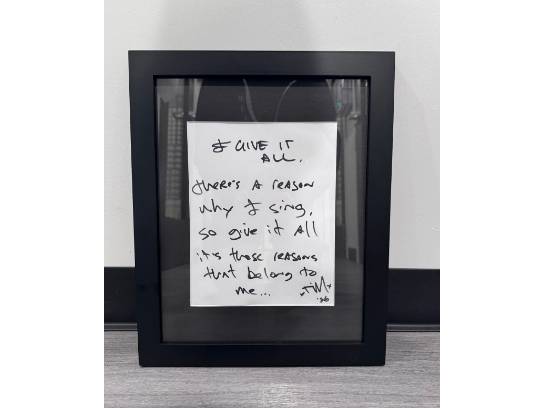 I GIVE IT
ALL.
there's A reASON
why I sing,
so give it All
it's those reASONS
that belong to
me... Tim
'26